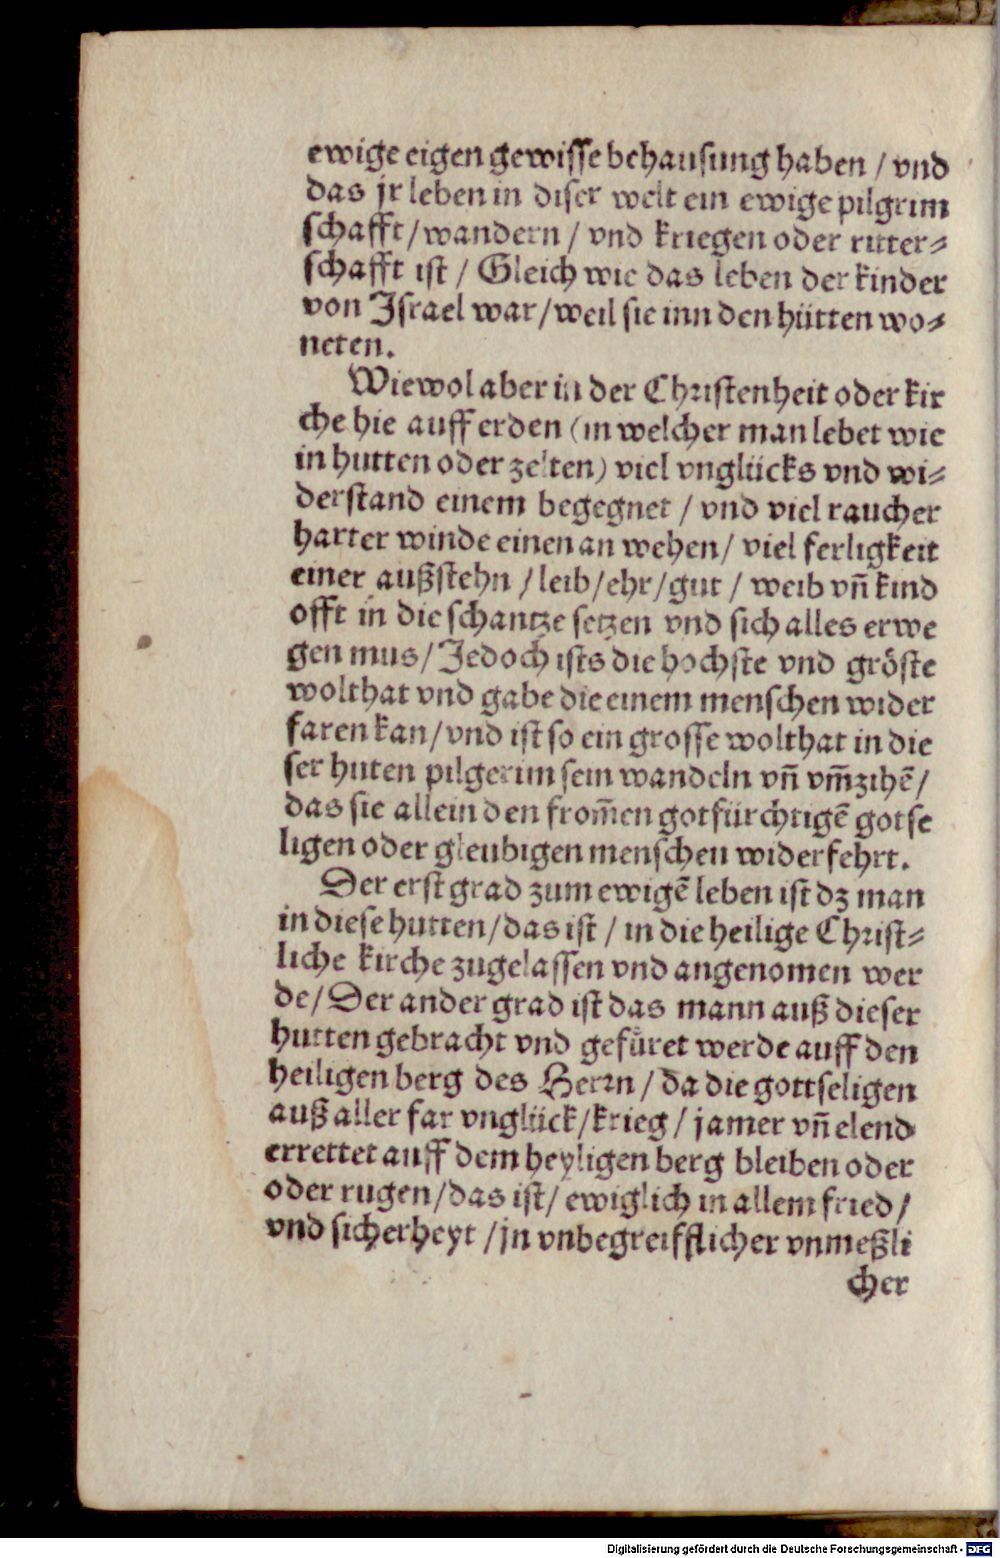 ewige eigen gewisse behausung haben / vnd
das jr leben in diser welt ein ewige pilgrim
schafft / wandern / vnd kriegen oder ritter⸗
schafft ist / Gleich wie das leben der kinder
von Israel war / weil sie inn den hütten wo⸗
neten.
Wiewol aber in der Christenheit oder kir
che hie auff erden (in welcher man lebet wie
in hutten oder zelten) viel vnglücks vnd wi⸗
derstand einem begegnet / vnd viel raucher
harter winde einen an wehen / viel ferligkeit
einer außstehn / leib / ehr / gut / weib vñ kind
offt in die schantze setzen vnd sich alles erwe
gen mus / Jedoch ists die hochste vnd gröste
wolthat vnd gabe die einem menschen wider
faren kan / vnd ist so ein grosse wolthat in die
ser huten pilgerim sein wandeln vñ vm̃zihẽ /
das sie allein den from̃en gotfürchtigẽ gotse
ligen oder gleubigen menschen widerfehrt.
Der erst grad zum ewigẽ leben ist dz man
in diese hutten / das ist / in die heilige Christ⸗
liche kirche zugelassen vnd angenomen wer
de / Der ander grad ist das mann auß dieser
hutten gebracht vnd gefüret werde auff den
heiligen berg des Herrn / da die gottseligen
auß aller far vnglück / krieg / jamer vñ elend
errettet auff dem heyligen berg bleiben oder
oder rugen / das ist / ewiglich in allem fried /
vnd sicherheyt / jn vnbegreifflicher vnmeßli
cher
Digitalisierung gefördert durch die Deutsche Forschungsgemeinschaft - DFG